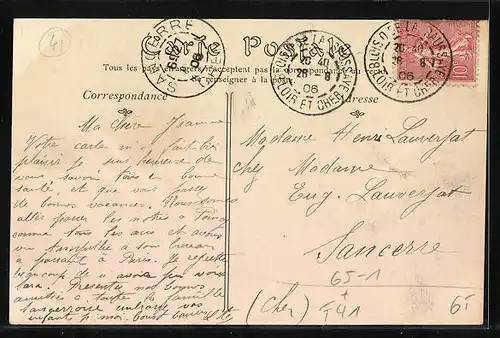 41
Carte Postale
Tous les pays étrangers n'acceptent pas la correspondance au
se renseigner à la
SANCERRE
06
BLOIS
20 40
28 - 8
06
LOIR ET CHER
BLOIS
20 40
28 8
06
LOIR ET CHER
10
Correspondance
Adresse
Ma chère Jeanne
Votre carte m'a fait bien
plaisir je suis heureuse de
vous savoir tous en bonne
santé, et que vous passez
de bonnes vacances. Nous sommes
allés passer les nôtres à
comme tous les ans et avons
à son bureau
en passant à Paris. Je regrette
beaucoup de n'avoir pu vous
voir. Présentez nos bonnes
amitiés à toute la famille
sancerroise embrassez vos
enfants p. moi.
Madame Henri Lauverjat
chez Madame
Eug. Lauverjat
Sancerre
65-1
+
(Cher)
T41
6i